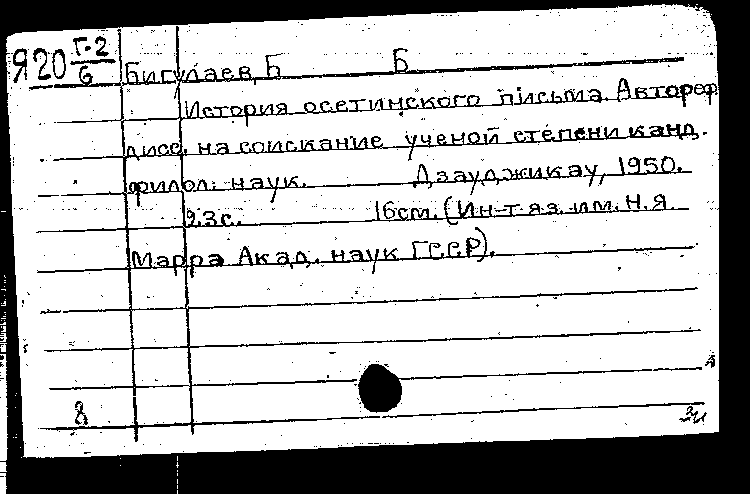 Я20 Г-2/6 Бигулаев, Б Б
История осетинского письма. Автореф
дисс. на соискание ученой степени канд.
филол. наук. Дзауджикау, 1950.
23с. 16см. (Ин-т яз. им. Н.Я.
Марра Акад. наук ГССР).
8